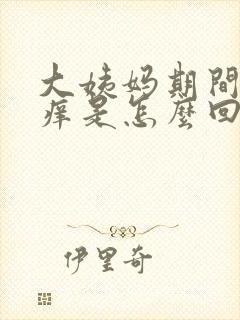 大姨妈期間
痒是怎麼回
伊里奇